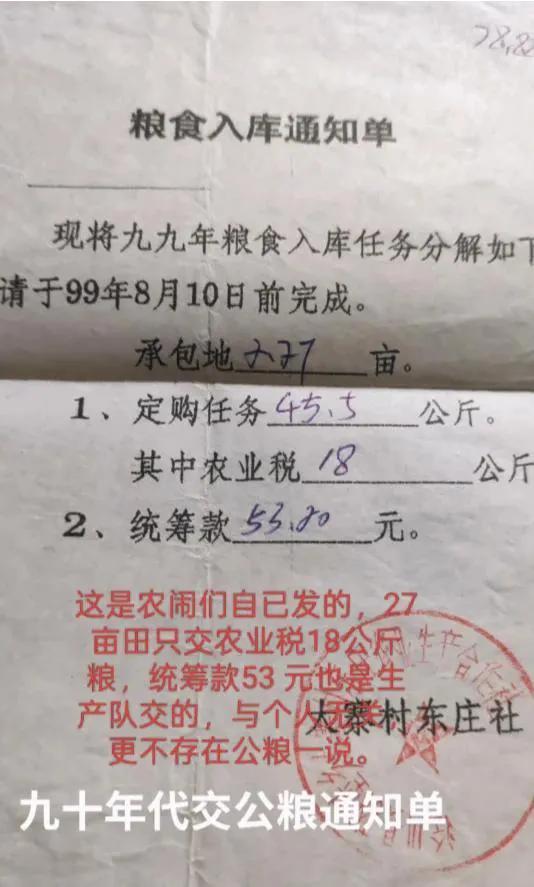 粮食入库通知单
现将九九年粮食入库任务分解如下
请于99年8月10日前完成。
承包地2.27亩。
1、定购任务45.5公斤。
其中农业税18公斤
2、统筹款53.80元。
这是农闹们自已发的，27
亩田只交农业税18公斤
粮，统筹款53 元也是生
产队交的，与个人
更不存在公粮一说。
大寨村东庄社
九十年代交公粮通知单